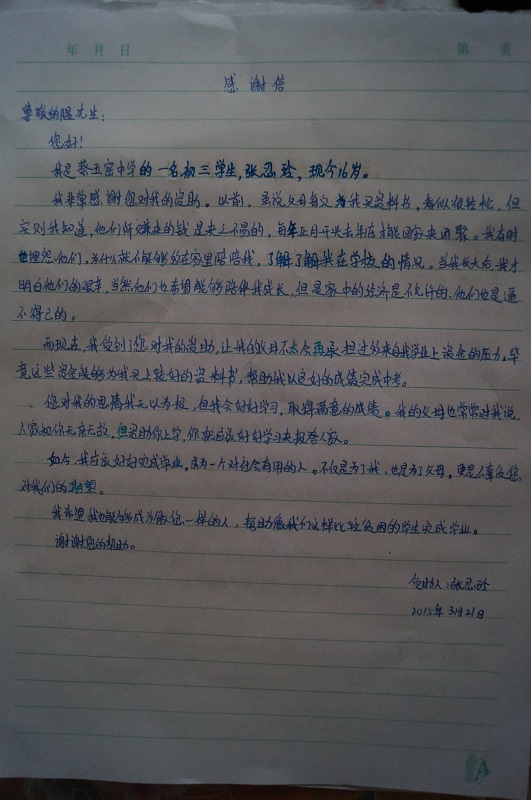 年 月 日 第 页
感谢信
尊敬的 先生：
您好！
我是蔡玉窑中学的一名初三学生，张忍玲，现今16岁。
我非常感谢您对我的资助。以前，虽说父母每交为我买资料书，看似很轻松，但
实则我知道，他们所赚来的钱是来之不易的，每年正月开头去年底才能回家来团聚。我有时
也埋怨他们，为什么就不能够的在家里陪陪我，了解了解我在学校的情况。当我长大后，我才
明白他们的艰辛，当然他们也希望能够陪伴我成长，但是家中的经济是不允许的，他们也是逼
不得已的。
而现在，我受到了您对我的资助，让我的父母不太会再承担过多来自我学业上资金的压力，毕
竟这些资金能够为我买上较好的资料书，帮助我以良好的成绩完成中考。
您对我的恩情我无以为报，但我会好好学习，取得满意的成绩。我的父母也常常对我说，
人家和你无亲无故，但资助你上学，你就应该好好学习来报答人家。
如今，我应该好好完成学业，成为一个对社会有用的人。不仅是为了我，也是为了父母，更是不辜负您
对我们的期望。
我希望我也能够成为像您一样的人，帮助像我们这样比较贫困的学生完成学业。
谢谢您的帮助。
受助人：张忍玲
2015年3月21日
A